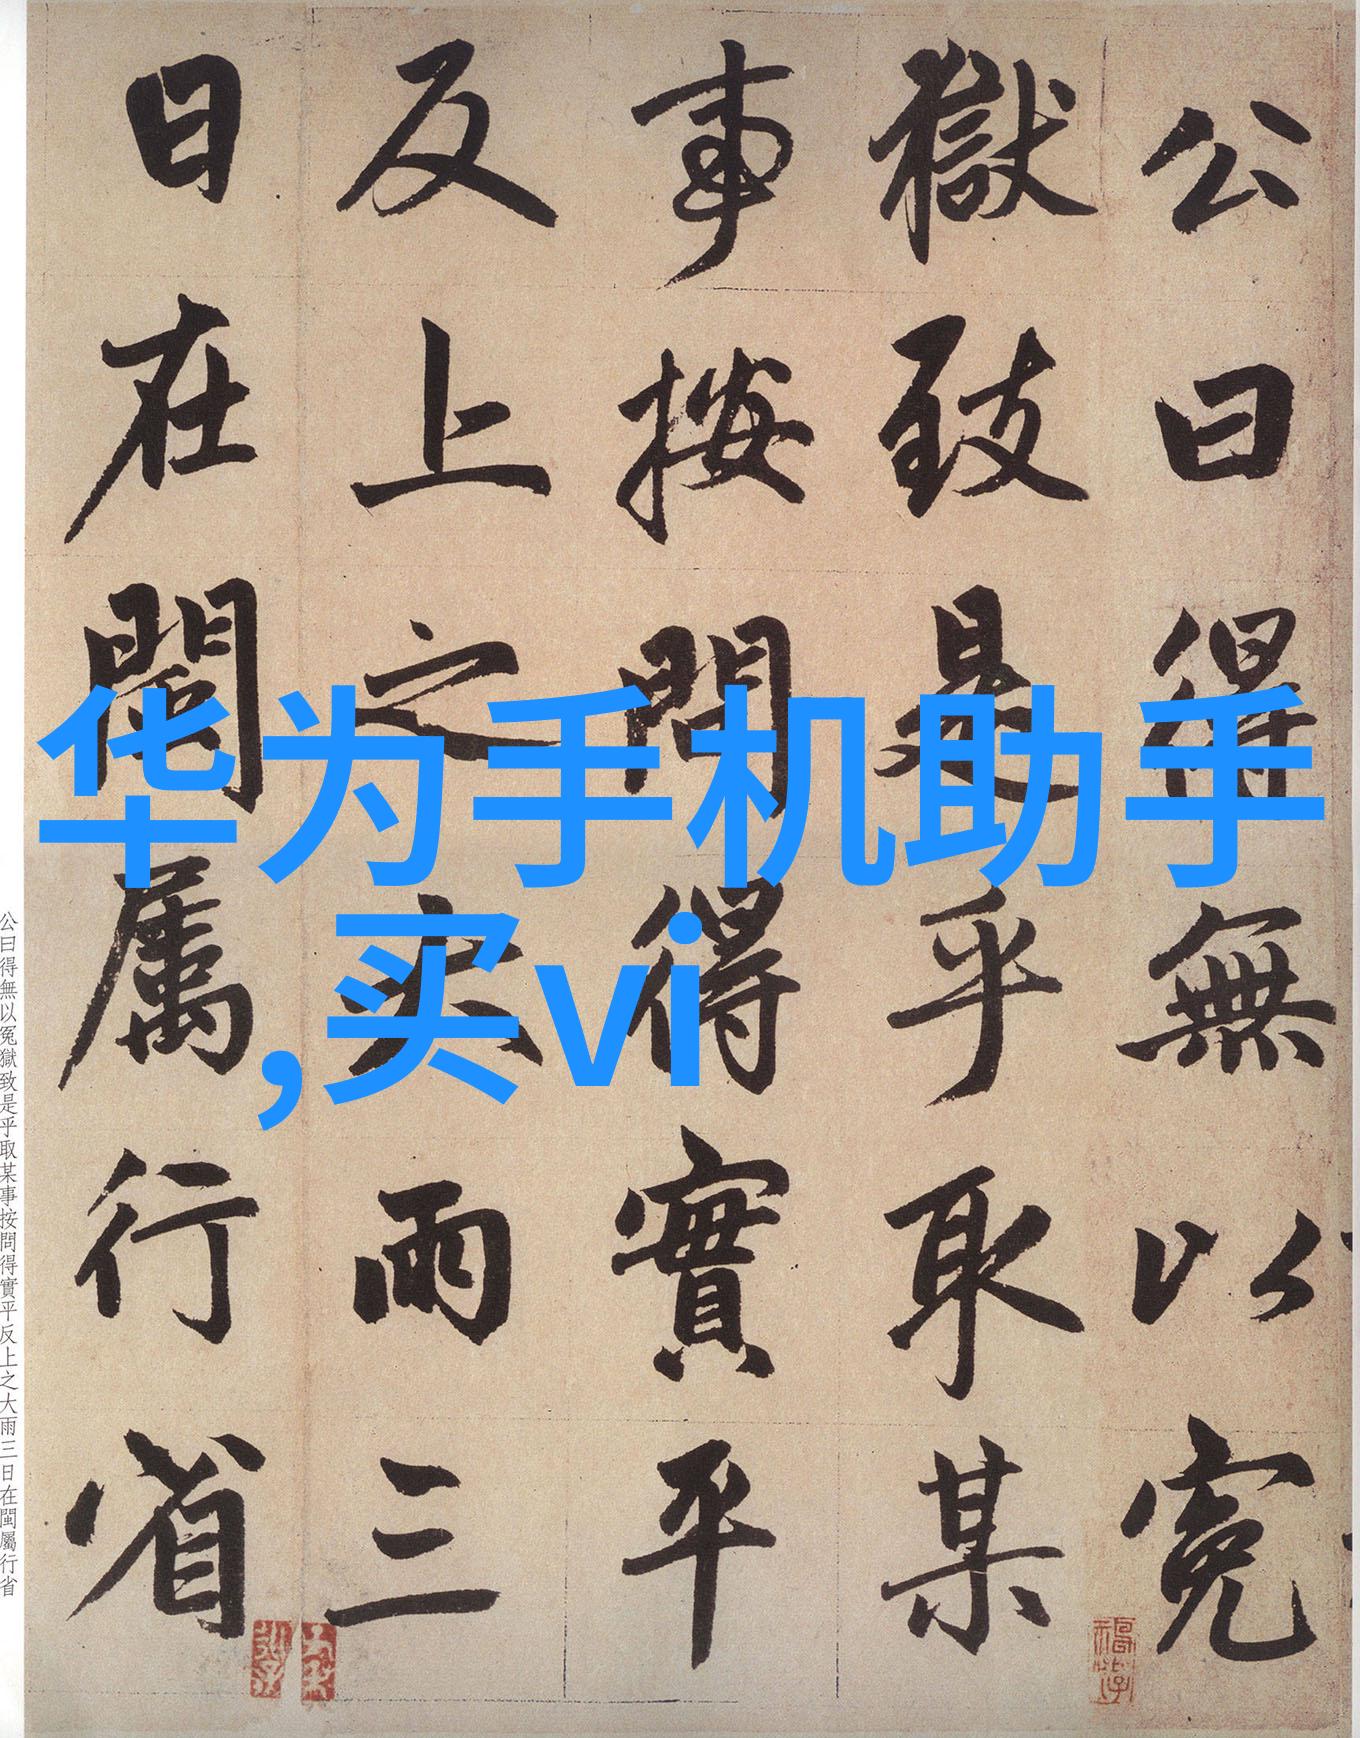 公曰得無以冤
獄致是乎取某
事按問得實平
反上之大雨三
日在閩屬行省
公曰得無以冤獄致是乎取某事按問得實平反上之大雨三日在閩屬行省
华为手机助手
,买vi